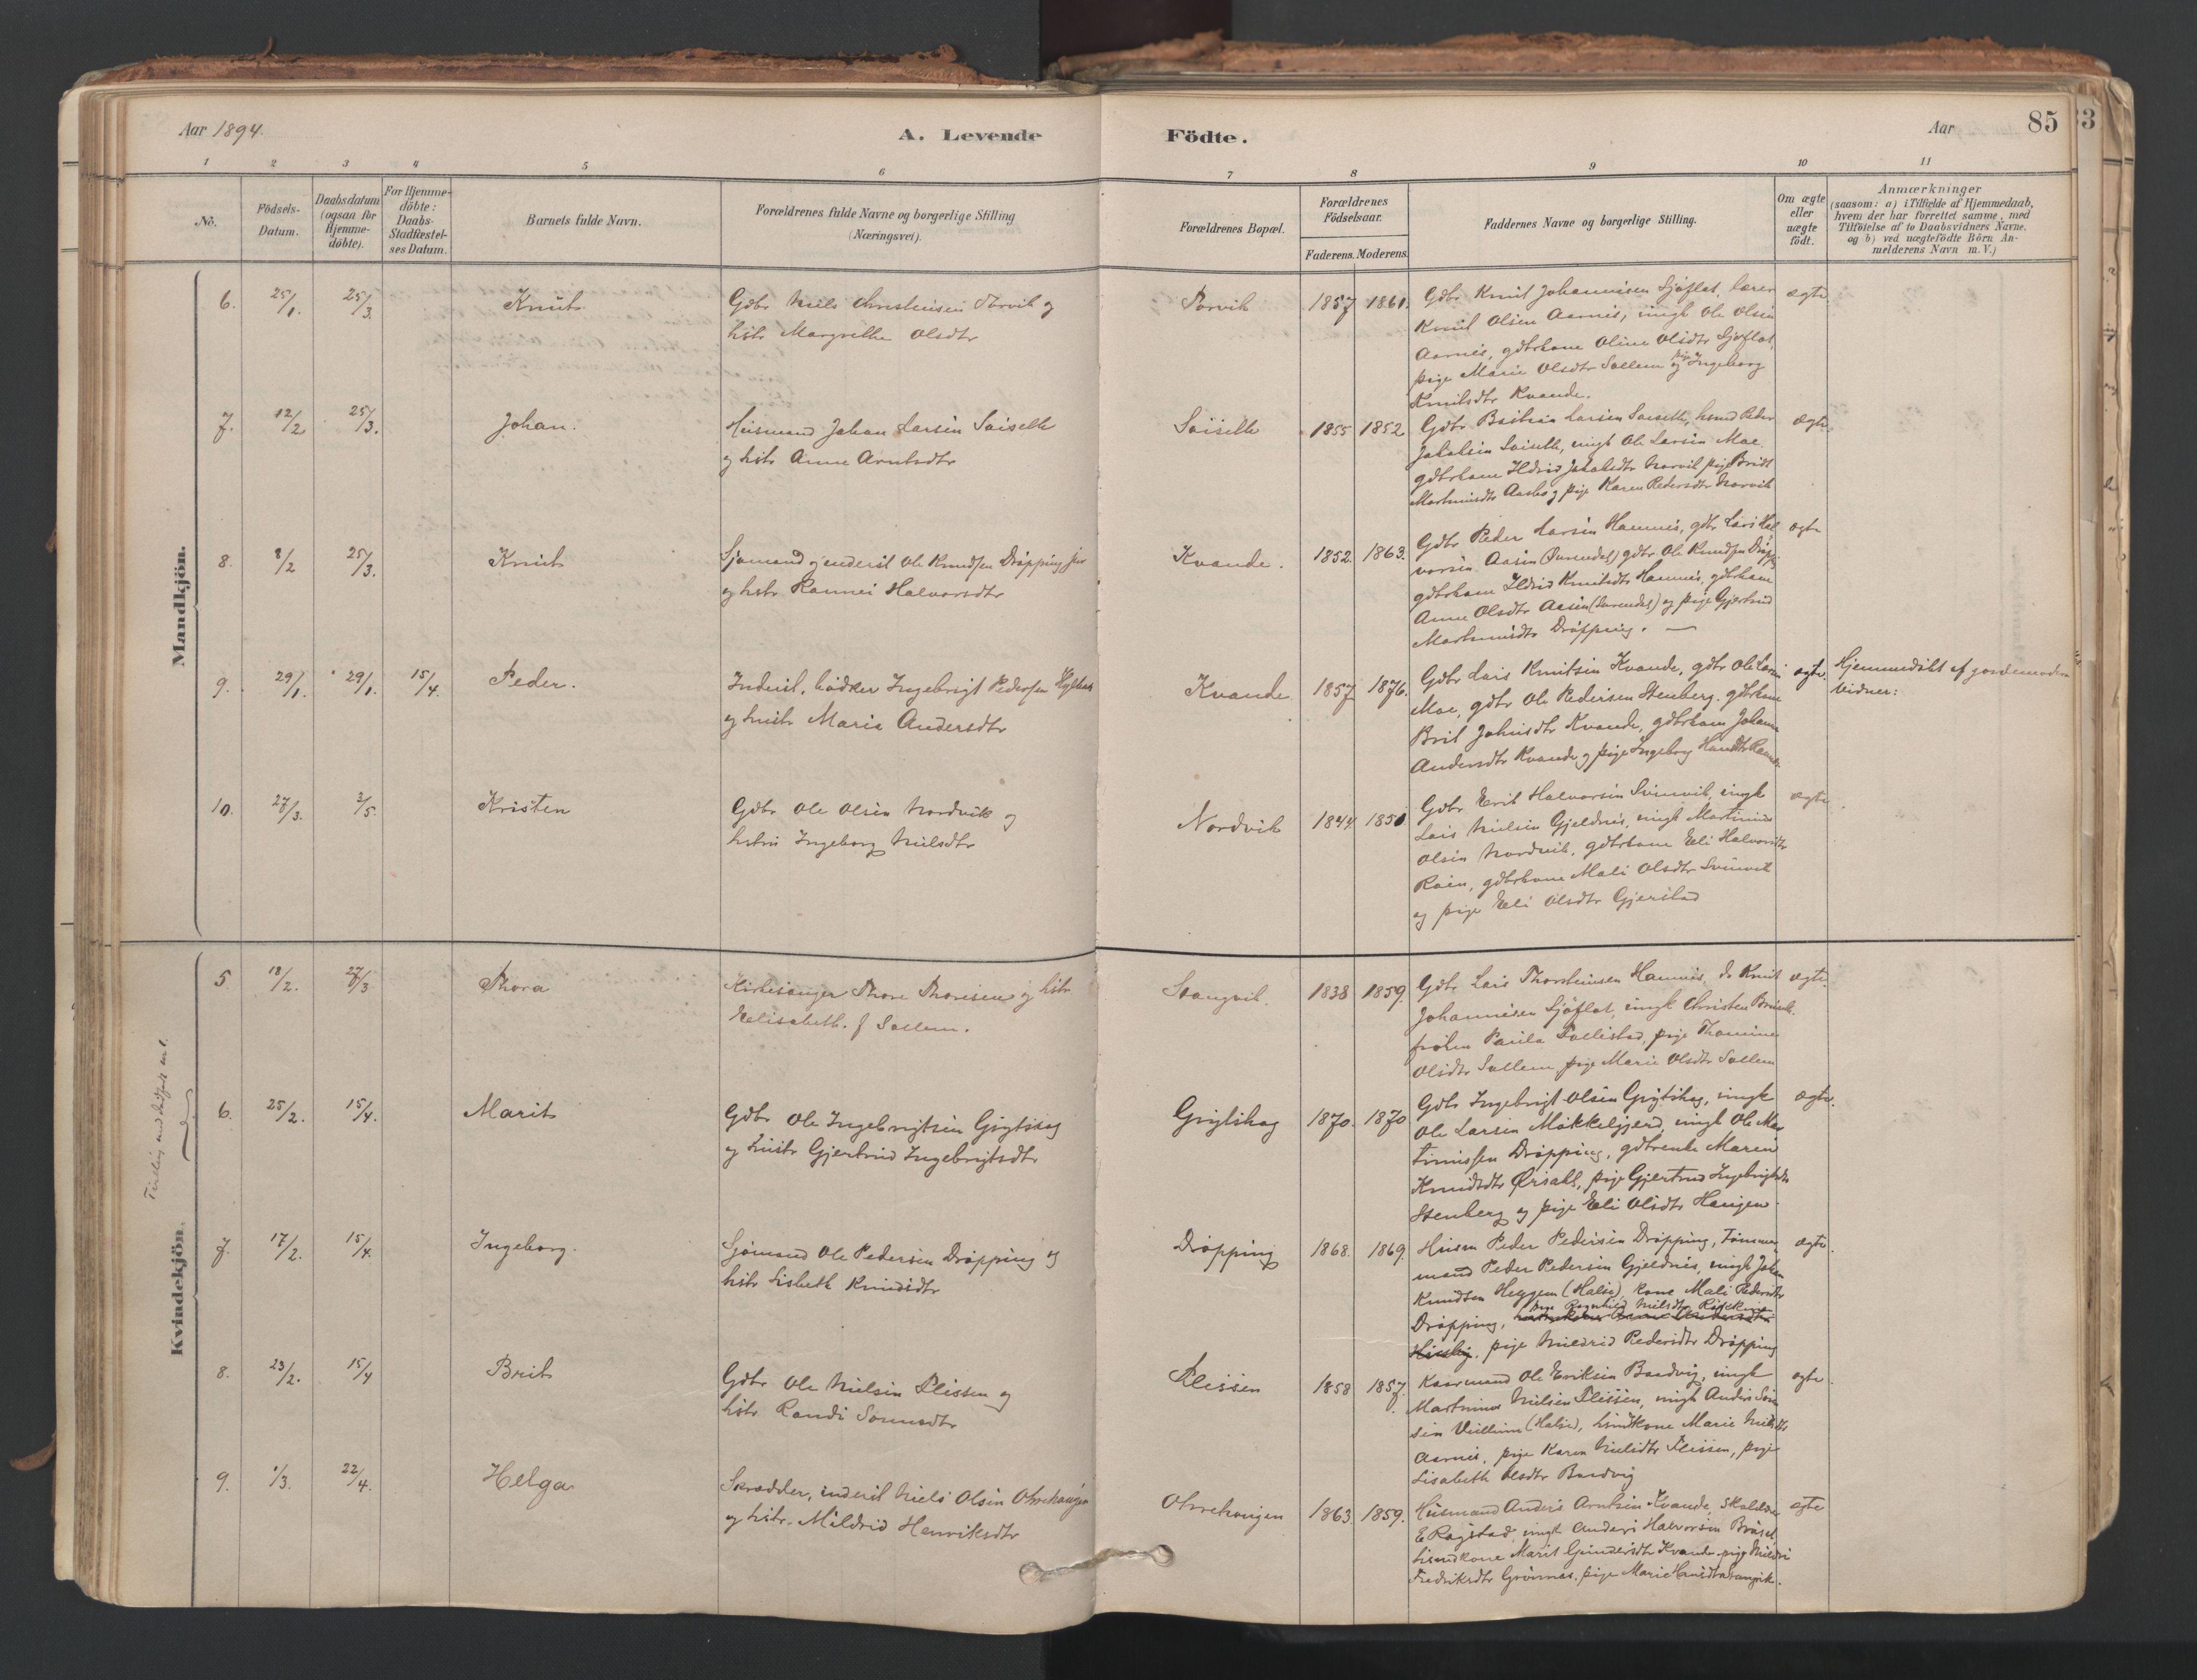 Aar 1894.
A. Levende
Födte.
Aar
85
33
1 2 3 4 5 6 7 8 9 10 11
No.
Födsels-
Datum.
Daabsdatum
(ogsaa for
Hjemme-
döbte).
For Hjemme-
döbte:
Daabs-
Stadfæstel-
ses Datum.
Barnets fulde Navn.
Forældrenes fulde Navne og borgerlige Stilling
(Næringsvei).
Forældrenes Bopæl.
Forældrenes
Födselsaar.
Faderens. Moderens.
Faddernes Navne og borgerlige Stilling.
Om ægte
eller
uægte
födt.
Anmærkninger
(saasom: a) i Tilfælde af Hjemmedaab,
hvem der har forrettet samme, med
Tilföielse af to Daabsvidners Navne.
og b) ved uægtefödte Börn An-
melderens Navn m. V.)
Mandkjön.
6. 25/1. 25/3. Knut
Gdbr Niels Christensen Torvik og
hstr Margrethe Olsdtr
Torvik 1857 1861.
Gdbr Knut Johannesen Sjøflot, lærer
Knut Olsen Aarnes, ungk Ole Olsen
Aarnes, gdbrkone Oline Olsdtr Sjøflot,
pige Marie Olsdtr Sollem og pige Ingeborg
Knutsdtr Kvande.
ægte
7. 12/2 25/3. Johan.
Husmand Johan Larsen
og hstr Anne Arntsdtr
1855 1852
Gdbr Larsen husmd Peder
Jakobsen ungk Ole Larsen Moe
gdbrkone Ildrid Jakobsdtr Norvik pige Bridt
og pige Karen Pedersdtr Norvik
ægte.
8. 8/2 25/3. Knut
Sjømand Ole Knudsen Drøpping
og hstr Rannei Halvorsdtr
Kvande. 1852. 1863.
Gdbr Peder Larsen Hamnes, gdbr Lars Hal
vorsen Aasen (Surendal) gdbr Ole Knudsen Drøpp.
gdbrkone Ildrid Knutsdtr Hamnes, gdbrkone
Anne Olsdtr Aasen (Surendal) og pige Gjertrud
Martinusdtr Drøpping. —
ægte
9. 29/1. 29/1. 15/4. Peder.
Inderst, bødker Ingebrigt Pedersen
og hustr Maria Andersdtr
Kvande 1857 1876.
Gdbr Lars Knutsen Kvande, gdbr Ole Larsen
Moe, gdbr Ole Pedersen Stenberg. gdbrkone
Brit Johnsdtr Kvande, gdbrkone Johanna
Andersdtr Kvande og pige Ingeborg
ægte.
Hjemmedøbt af jordemoderen
Vidner:
10. 27/3. 3/5. Kristen
Gdbr Ole Olsen Nordvik og
hstru Ingeborg Nielsdtr
Nordvik 1844 1850
Gdbr Erik Halvorsen Svinvik, ungk
Lars Nielsen Gjeldnes, ungk Martinus
Olsen Nordvik, gdbrkone Eli Halvorsdtr
Røen, gdbrkone Mali Olsdtr Svinvik
og pige Eli Olsdtr Gjerstad
ægte.
Kvindekjön.
Tvilling med dødfødt
5 18/2. 27/3 Thora
Kirkesanger Thore Thoresen og hstr
Elisabeth f Sollem.
Stangvik. 1838 1859.
Gdbr Lars Thorsteinsen Hamnes, do Knut
Johannesen Sjøflot, ungk Christen
frøken Paula pige Thomine
Olsdtr Sollem, pige Marie Olsdtr Sollem
ægte.
6. 25/2. 15/4. Marit
Gdbr Ole Ingebrigtsen Grytskog
og hustr Gjertrud Ingebrigtsdtr
Grytskog 1870. 1870
Gdbr Ingebrigt Olsen Grytskog, ungk
Ole Larsen Møkkelgjerd, ungk Ole Mar
tinussen Drøpping, gdbrenke Maren
Knudtsdtr Ørsahl, pige Gjertrud Ingebrigtsdtr
Stenberg og pige Eli Olsdtr Haugen
ægte.
7. 17/2. 15/4. Ingeborg.
Sjømand Ole Pedersen Drøpping og
hstr Lisbeth Knudsdtr
Drøpping 1868. 1869.
Husm Peder Pedersen Drøpping, Tømmer
mand Peder Pedersen Gjeldnes, ungk Johan
Knudsen Heggem (Halse), kone Mali Pedersdtr
Drøpping, Ragnhild Nielsdtr
pige Mildrid Pedersdtr Drøpping
ægte.
8. 23/2. 15/4 Brit
Gdbr Ole Nielsen Flessen og
hstr Randi
Flessen 1858 1857.
Ole Eriksen Bardvig, ungk
Martinus Nielsen Flessen, ungk Anders
(Halse), husmdkone Marie Nielsdtr
Aarnes, pige Karen Nielsdtr Flessen, pige
Lisabeth Olsdtr Bardvig
ægte.
9. 1/3. 22/4. Helga
Skrædder, inderst Niels Olsen
og hstr. Mildrid Henriksdtr
1863. 1859.
Husmand Anders Arntsen Kvande,
E Ragstad, ungk Anders Halvorsen
husmdkone Marit Kvande pige Mildri
Fredriksdtr Grønnes, pige Marie Hansdtr Stangvik.
ægte